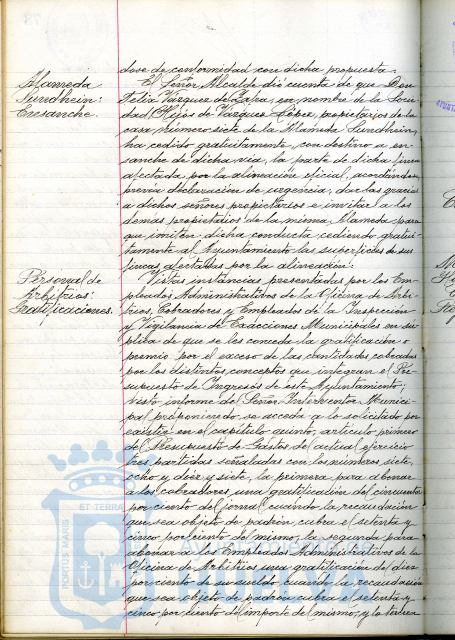 dose de conformidad con dicha propuesta.
Alameda
Sundheim:
Ensanche.
El Señor Alcalde dió cuenta de que Don
Félix Vázquez de Zafra, en nombre de la Socie
dad Hijos de Vázquez López, propietarios de la
casa número siete de la Alameda Sundheim,
ha cedido gratuitamente, con destino a en-
sanche de dicha vía, la parte de dicha finca
afectada por la alineación oficial, acordándose,
previa declaración de urgencia, dar las gracias
a dichos señores propietarios e invitar a los
demás propietarios de la misma Alameda para
que imiten dicha conducta cediendo gratui-
tamente al Ayuntamiento las superficies de sus
fincas afectadas por la alineación.
Personal de
Arbitrios:
Gratificaciones.
Vistas instancias presentadas por los Em-
pleados Administrativos de la Oficina de Arbi-
trios, Cobradores y Empleados de la Inspección
y Vigilancia de Exacciones Municipales en sú-
plica de que se les conceda la gratificación o
premio por el exceso de las cantidades cobradas
por los distintos conceptos que integran el Pre-
supuesto de Ingresos de este Ayuntamiento;
visto informe del Señor Interventor Munici-
pal proponiendo se acceda a lo solicitado por
existir en el capítulo quinto, artículo primero
del Presupuesto de Gastos del actual ejercicio
tres partidas señaladas con los números siete,
ocho y diez y siete, la primera para abonar
a los cobradores una gratificación del cincuenta
por ciento del jornal cuando la recaudación
que sea objeto de padrón cubra el setenta y
cinco por ciento del mismo, la segunda para
abonar a los Empleados Administrativos de la
Oficina de Arbitrios una gratificación del diez
por ciento de su sueldo cuando la recaudación
que sea objeto de padrón cubra el setenta y
cinco por ciento del importe del mismo, y la tercera
PORTUS MARIS ET TERRAE